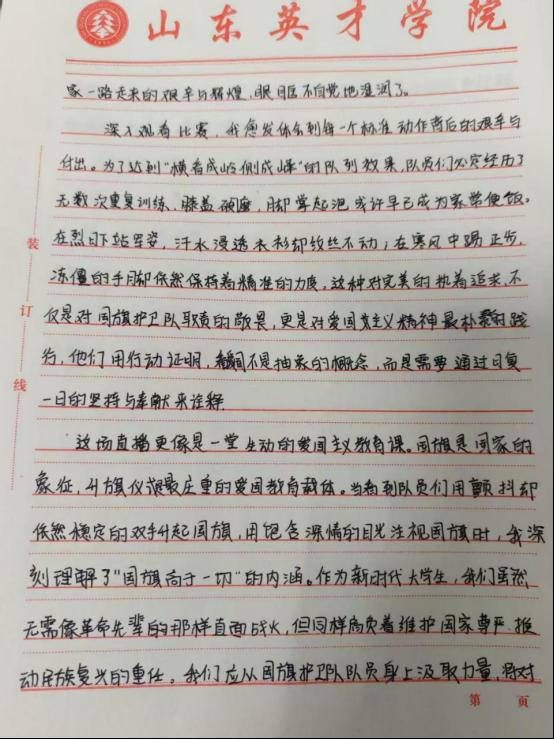 山东英才学院
家一路走来的艰辛与辉煌,眼眶不自觉地湿润了。
深入观看比赛,我愈发体会到每一个标准动作背后的艰辛与
付出。为了达到“横看成岭侧成峰”的队列效果,队员们必定经历了
无数次重复训练、膝盖破磨,脚掌起泡或许早已成为家常便饭。
在烈日下站军姿,汗水浸透衣衫却纹丝不动;在寒风中踢正步,
冻僵的手脚依然保持着精准的力度。这种对完美的执着追求,不
仅是对国旗护卫队职责的敬畏,更是对爱国主义精神最朴素的践
行,他们用行动证明,爱国不是抽象的概念,而是需要通过日复
一日的坚持与奉献来诠释
这场直播更像是一堂生动的爱国主义教育课。国旗是国家的
象征,升旗仪式是最庄重的爱国教育载体。当看到队员们用颤抖却
依然稳定的双手升起国旗,用饱含深情的目光注视国旗时,我深
刻理解了“国旗高于一切”的内涵。作为新时代大学生,我们虽然
无需像革命先辈的那样直面战火,但同样肩负着维护国家尊严、推
动民族复兴的重任。我们应从国旗护卫队队员身上汲取力量,将对
装
订
线
第 页